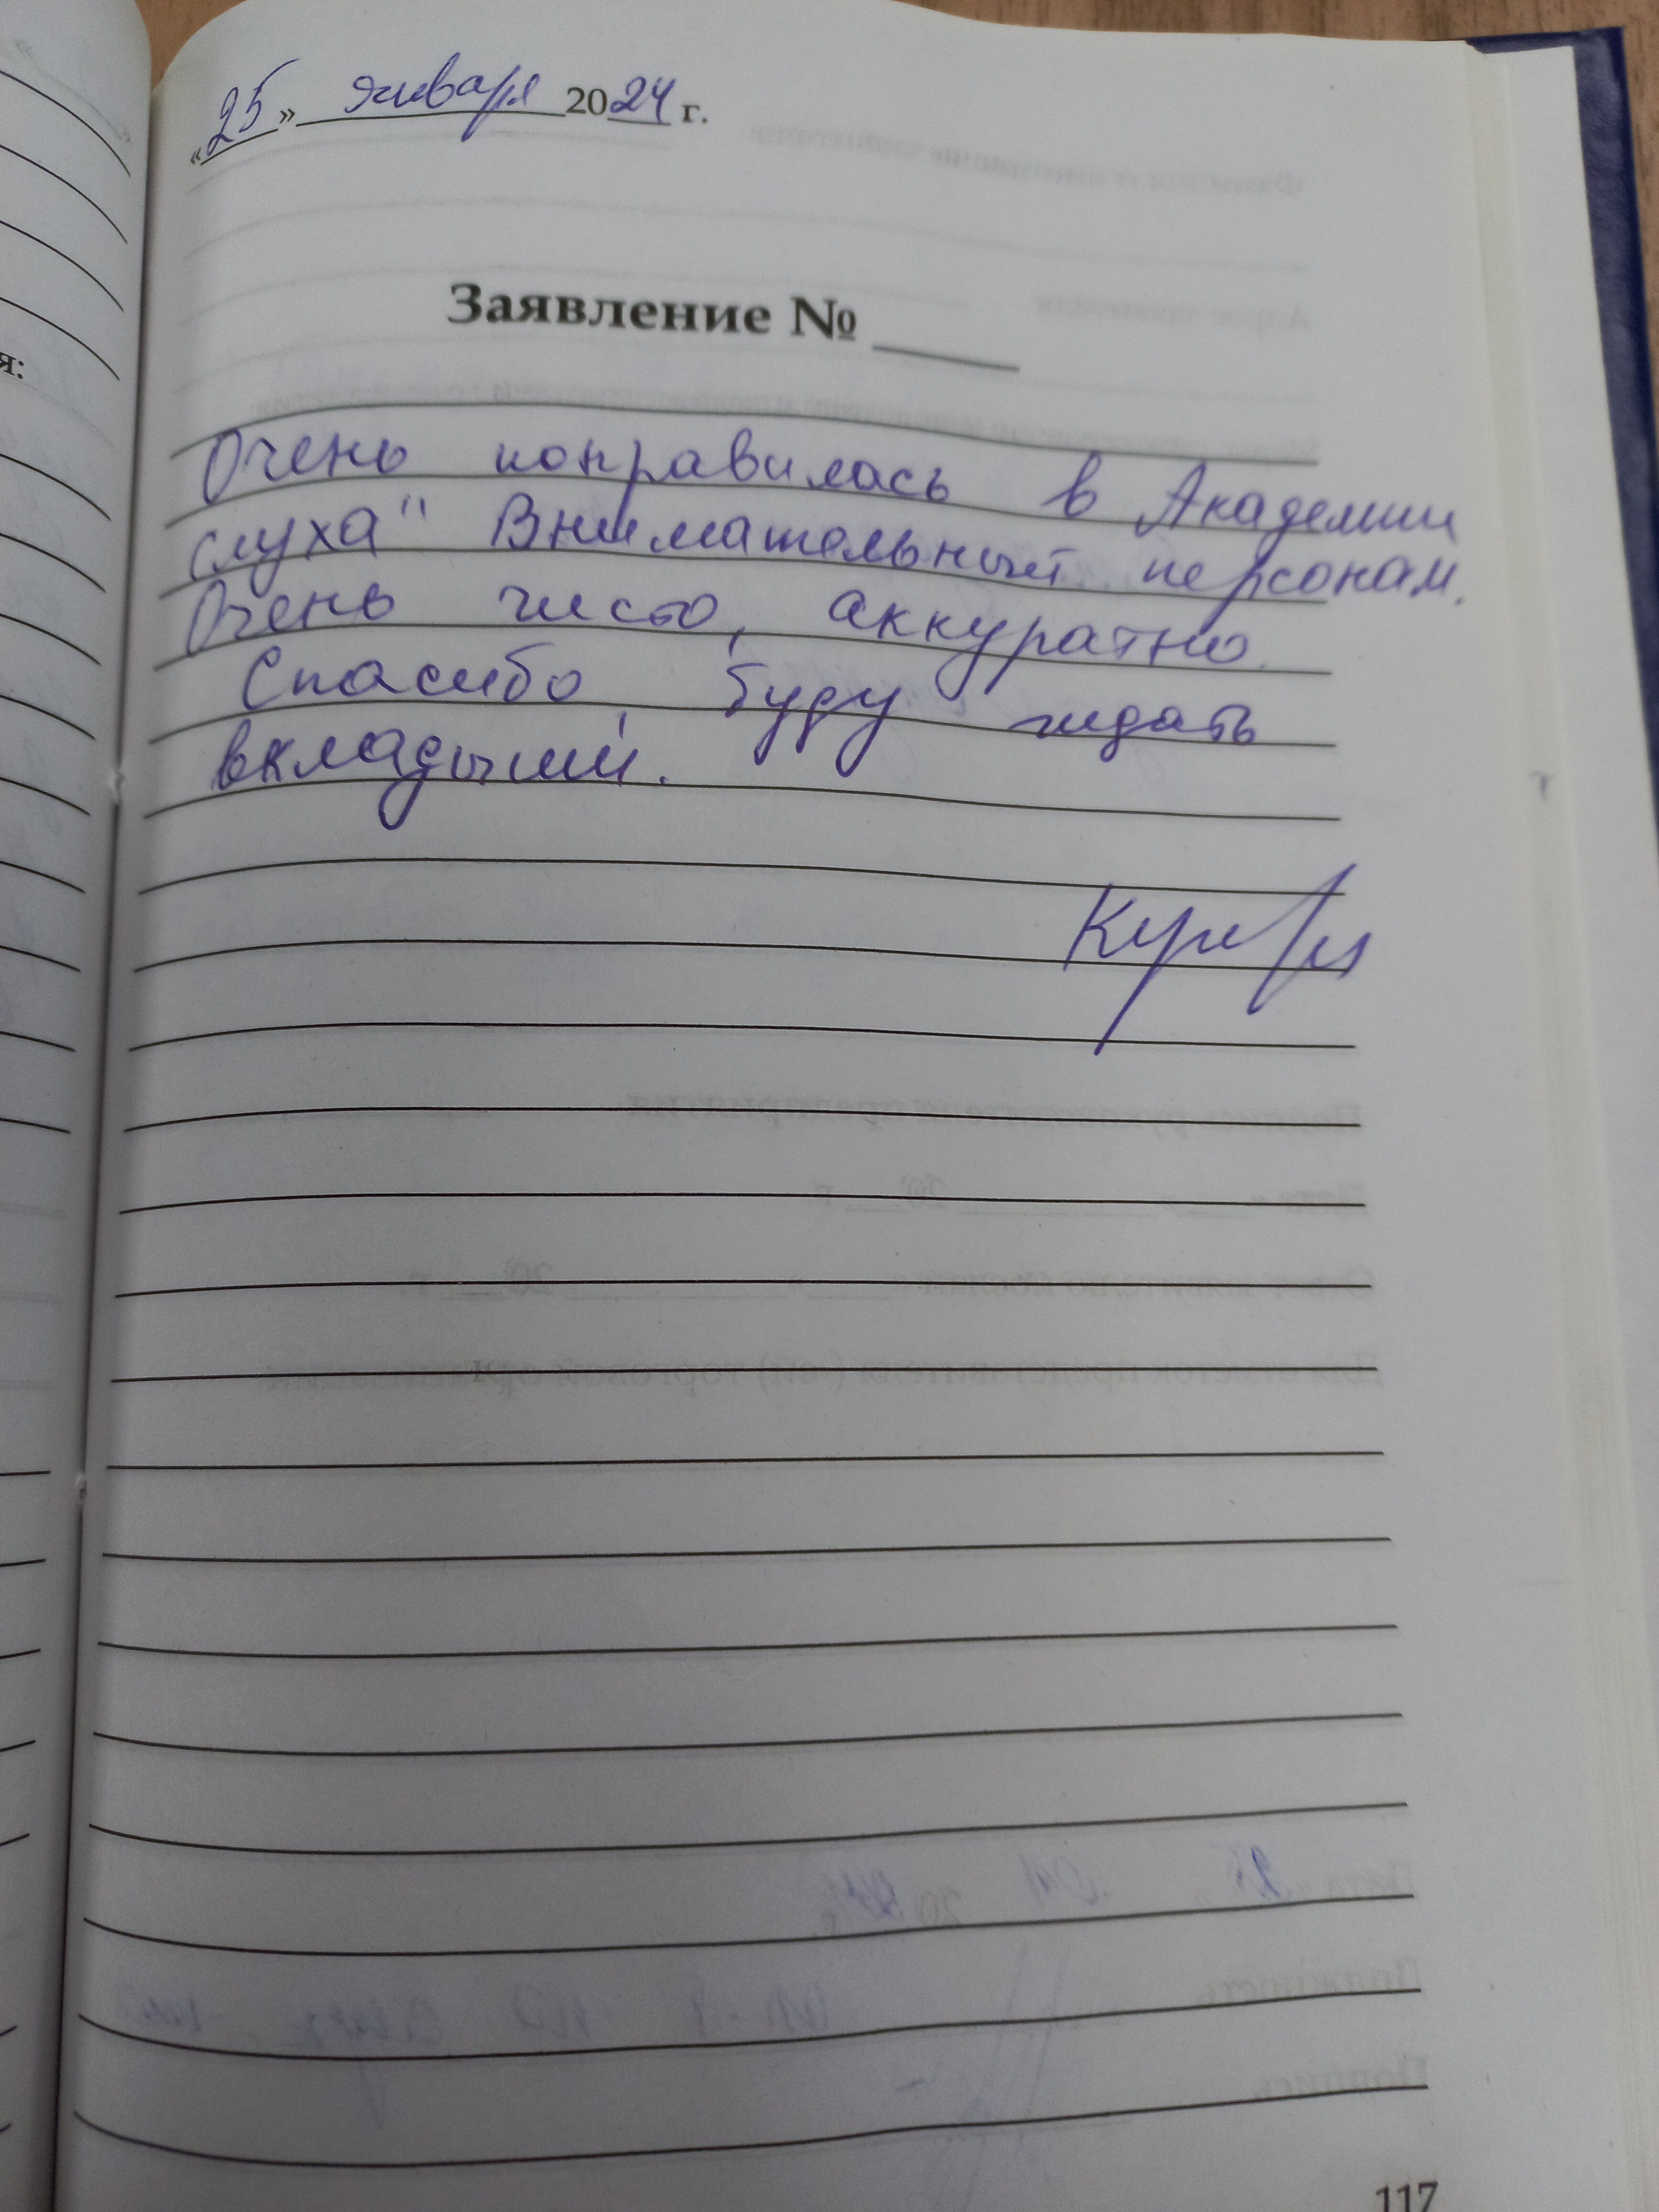 «25» января 2024 г.
Заявление № ____
Очень понравилась в Академии
слуха" Внимательный персонал.
Очень чисто, аккуратно.
Спасибо, буду ждать
вкладыши.
117
я: